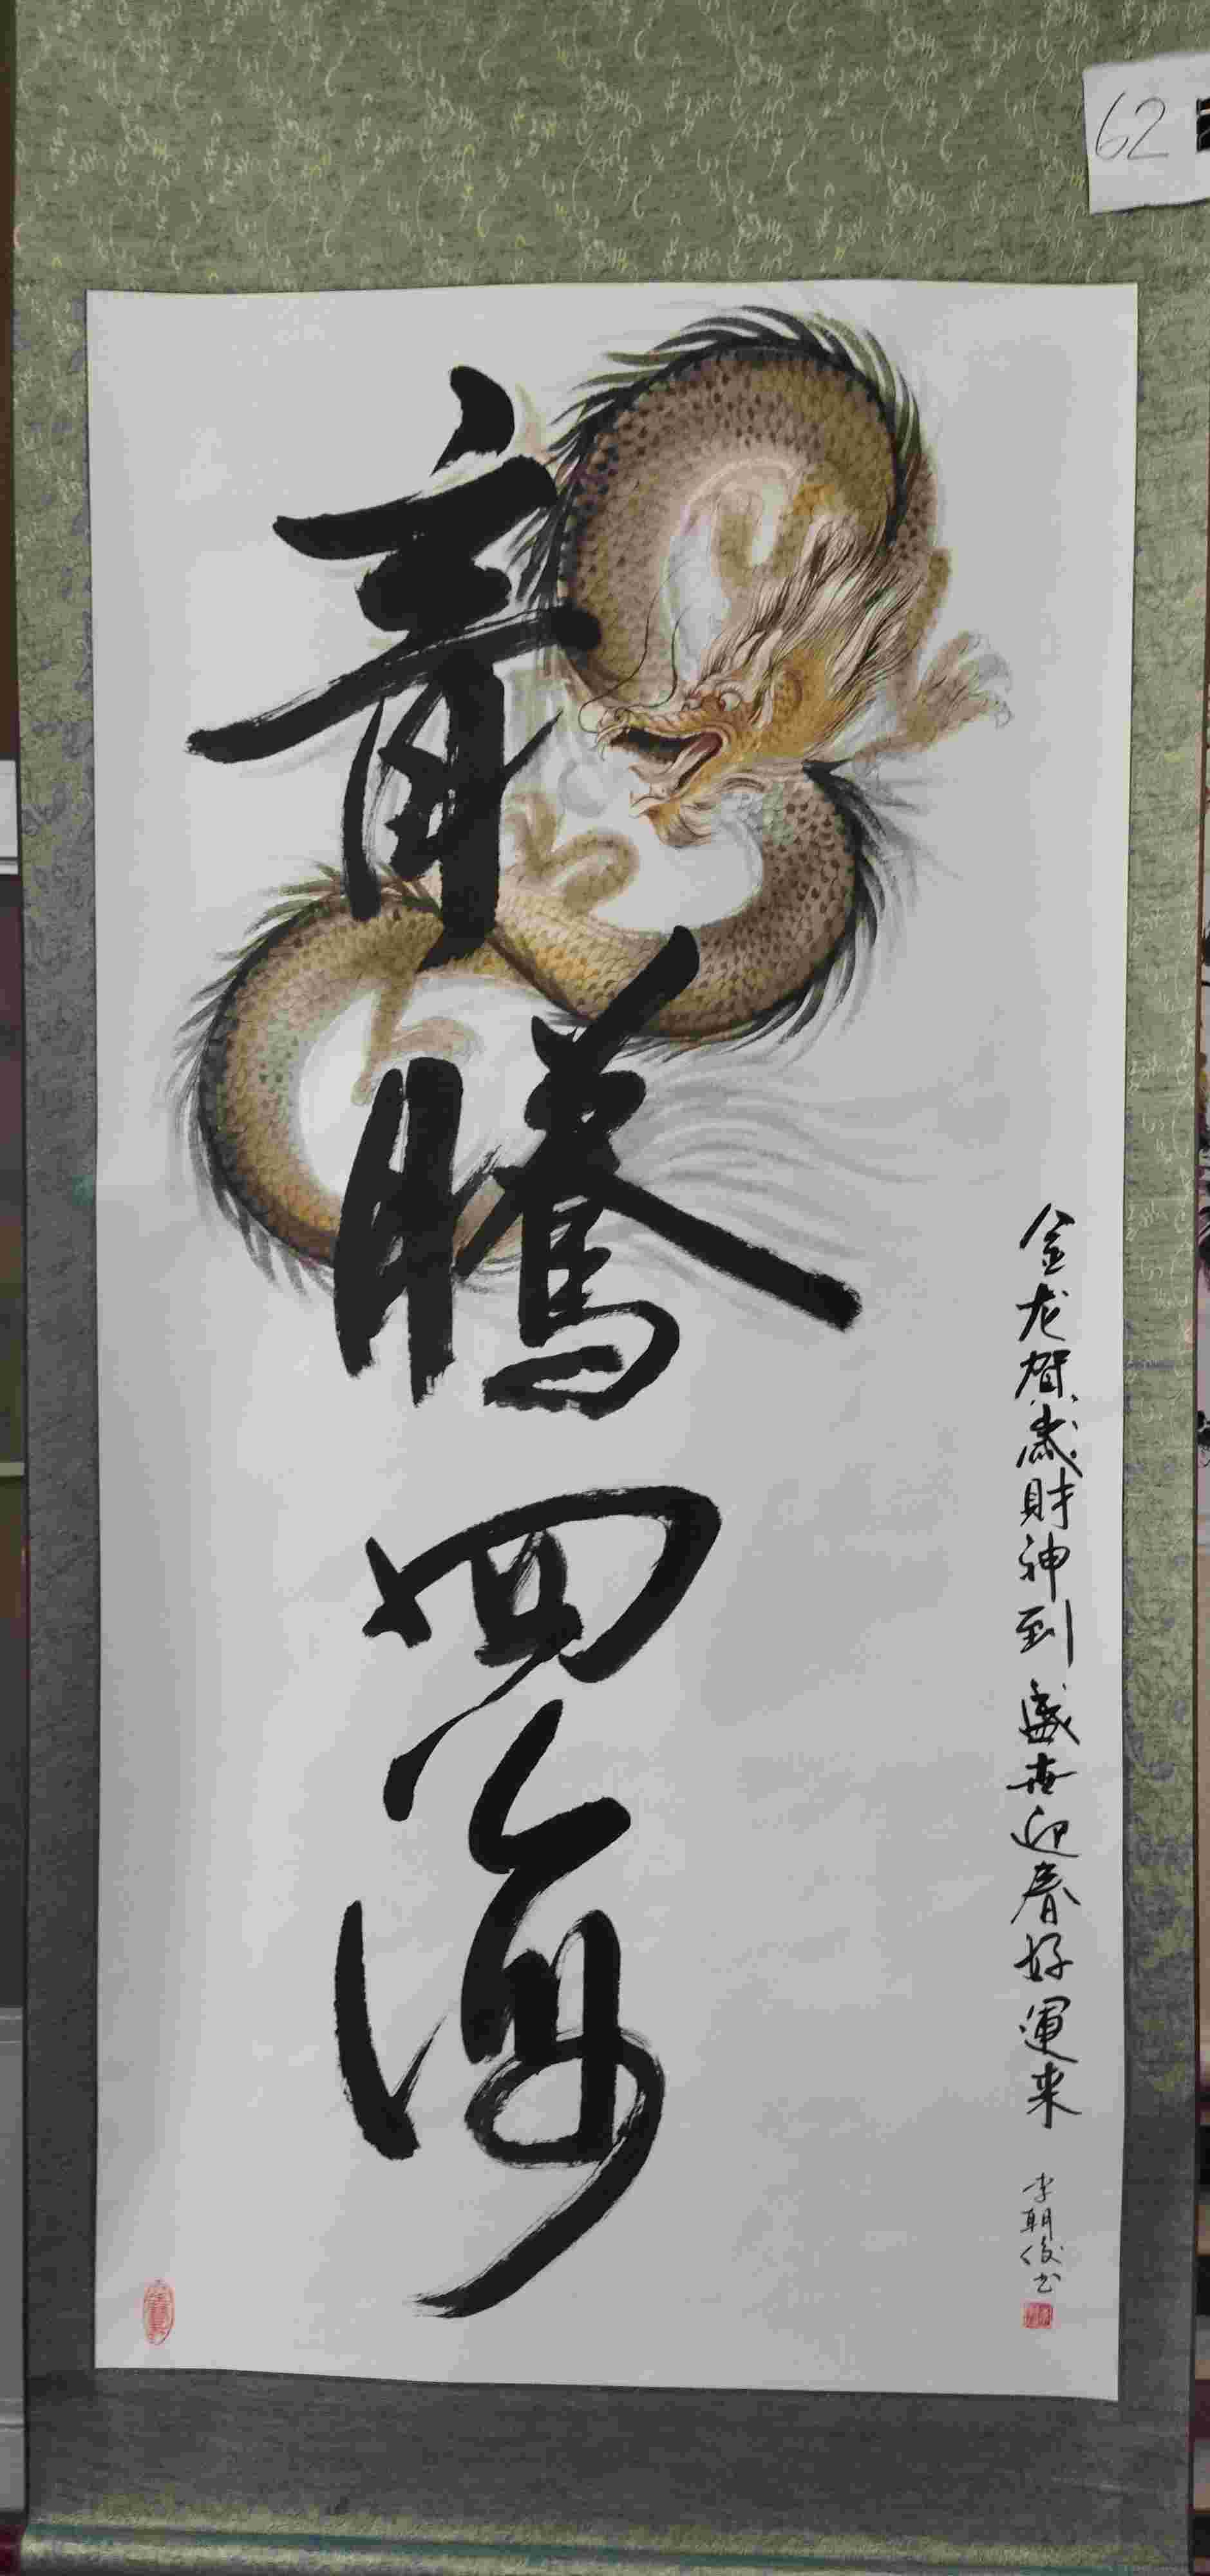 62
金龙賀歲財神到 盛世迎春好運来
李朝俊书
龍騰四海